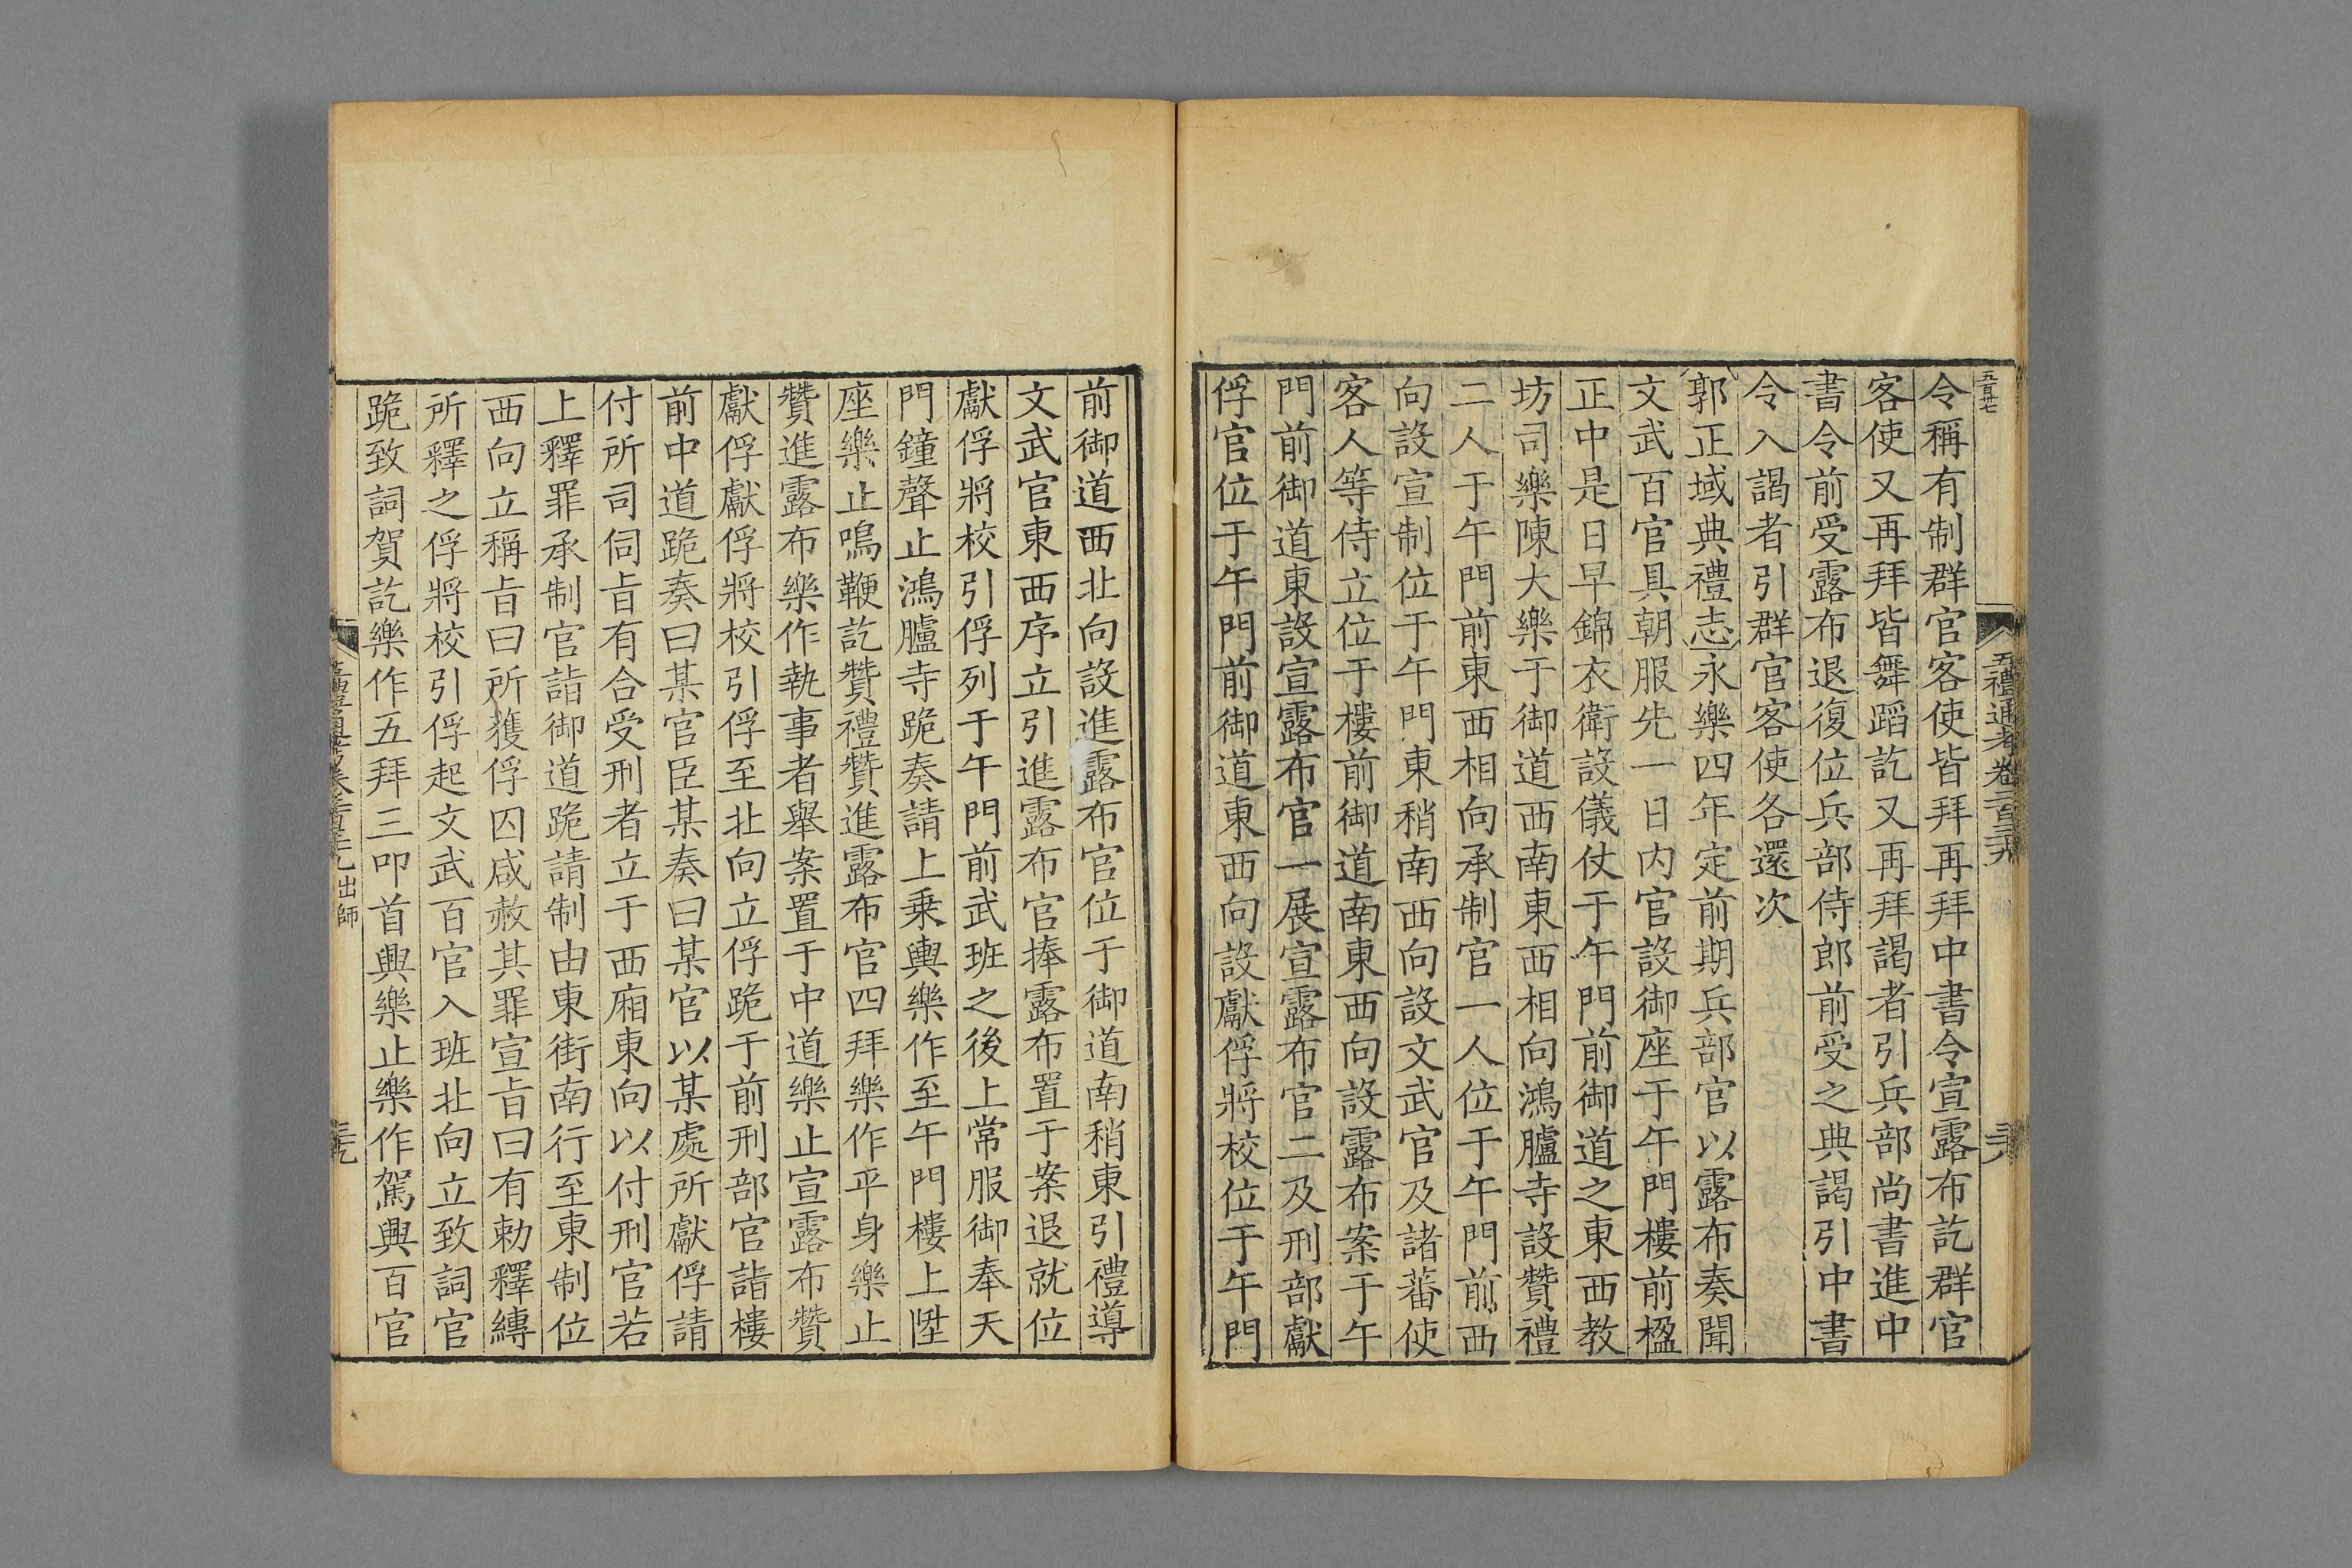 令稱有制群官客使皆拜再拜中書令宣露布訖群官
客使又再拜皆舞蹈訖又再拜謁者引兵部尚書進中
書令前受露布退復位兵部侍郎前受之典謁引中書
令入謁者引群官客使各還次
郭正域典禮志永樂四年定前期兵部官以露布奏聞
文武百官具朝服先一日内官設御座于午門樓前楹
正中是日早錦衣衛設儀仗于午門前御道之東西教
坊司樂陳大樂于御道西南東西相向鴻臚寺設贊禮
二人于午門前東西相向承制官一人位于午門前西
向設宣制位于午門東稍南西向設文武官及諸蕃使
客人等侍立位于樓前御道南東西向設露布案于午
門前御道東設宣露布官一展宣露布官二及刑部獻
俘官位于午門前御道東西向設獻俘將校位于午門
前御道西北向設進露布官位于御道南稍東引禮導
文武官東西序立引進露布官捧露布置于案退就位
獻俘將校引俘列于午門前武班之後上常服御奉天
門鐘聲止鴻臚寺跪奏請上乗輿樂作至午門樓上陞
座樂止鳴鞭訖贊禮贊進露布官四拜樂作平身樂止
贊進露布樂作執事者舉案置于中道樂止宣露布贊
獻俘獻俘將校引俘至北向立俘跪于前刑部官詣樓
前中道跪奏曰某官臣某奏曰某官以某處所獻俘請
付所司伺㫖有合受刑者立于西廂東向以付刑官若
上釋罪承制官詣御道跪請制由東街南行至東制位
西向立稱㫖曰所獲俘囚咸赦其罪宣㫖曰有勅釋縛
所釋之俘將校引俘起文武百官入班北向立致詞官
跪致詞賀訖樂作五拜三叩首興樂止樂作駕興百官
五禮通考卷二百三十九
出師